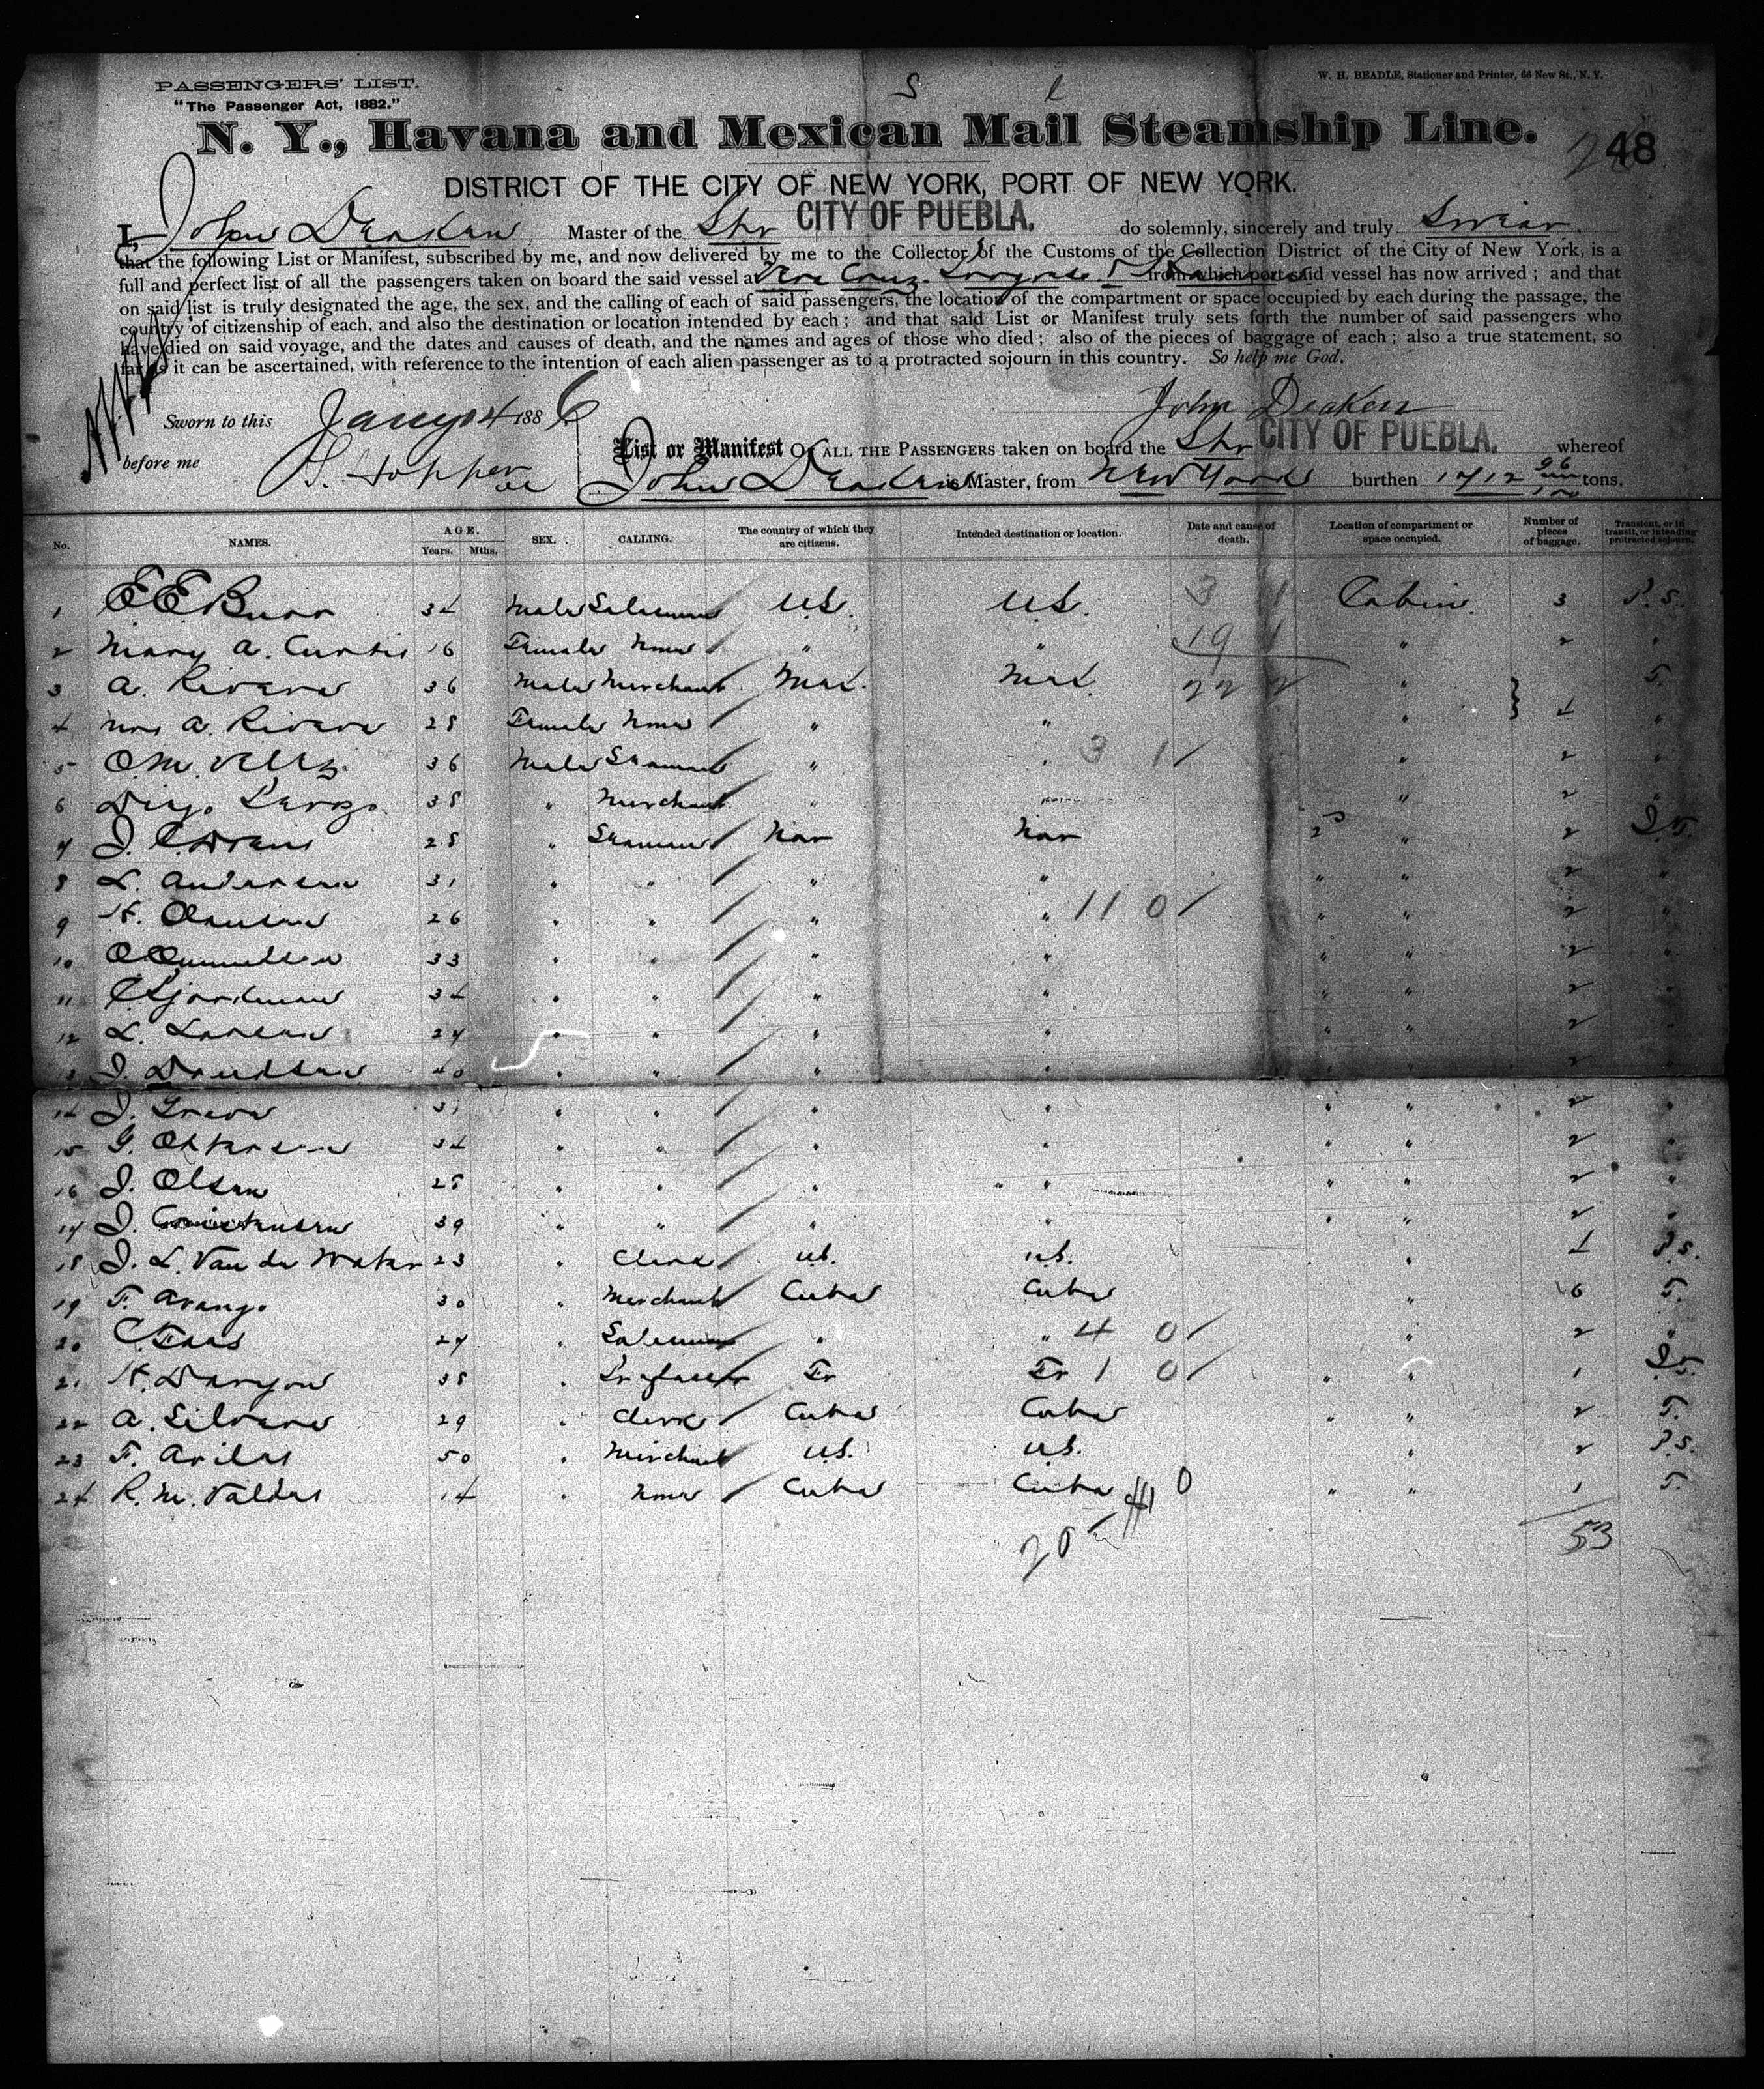 PASSENGERS' LIST.
"The Passenger Act, 1882."
W. H. BEADLE, Stationer and Printer, 66 New St., N. Y.
N. Y., Havana and Mexican Mail Steamship Line.
48
DISTRICT OF THE CITY OF NEW YORK, PORT OF NEW YORK.
I, John Deaken Master of the Shr CITY OF PUEBLA. do solemnly, sincerely and truly Swear
that the following List or Manifest, subscribed by me, and now delivered by me to the Collector of the Customs of the Collection District of the City of New York, is a
full and perfect list of all the passengers taken on board the said vessel at Vera Cruz from which port said vessel has now arrived; and that
on said list is truly designated the age, the sex, and the calling of each of said passengers, the location of the compartment or space occupied by each during the passage, the
country of citizenship of each, and also the destination or location intended by each; and that said List or Manifest truly sets forth the number of said passengers who
have died on said voyage, and the dates and causes of death, and the names and ages of those who died; also of the pieces of baggage of each; also a true statement, so
far as it can be ascertained, with reference to the intention of each alien passenger as to a protracted sojourn in this country. So help me God.
John Deaken
Sworn to this Jany 14 1886
before me
List or Manifest OF ALL THE PASSENGERS taken on board the Shr CITY OF PUEBLA. whereof
John Deaken is Master, from New York burthen 1712 96/100 tons.
No. NAMES. AGE. Years. Mths. SEX. CALLING. The country of which they are citizens. Intended destination or location. Date and cause of death. Location of compartment or space occupied. Number of pieces of baggage. Transient, or in transit, or intending protracted sojourn.
1 E E Burr 34 Male Salesman U.S. U.S. 3 1 Cabin. 3 P.S.
2 Mary A. Curtis 16 Female None " " 19 1 " 2 "
3 A. Rivera 36 Male Merchant Mex. Mex. 22 2 " T.
4 Mrs A. Rivera 28 Female None " " " 4 "
5 O.M. Velez 36 Male Seaman " " 3 1 " 2 "
6 38 " Merchant " " 2 "
7 J. 28 " Seaman Nor Nor " 2 I.T.
8 L. Andersen 31 " " " " " " 2 "
9 H. 26 " " " " 11 0 " " 2 "
10 33 " " " " " " 2 "
11 34 " " " " " " 2 "
12 L. Larsen 27 " " " " " " 2 "
13 J. 40 " " " " " " 2 "
14 J. 31 " " " " " " 2 "
15 G. 34 " " " " " " 2 "
16 J. Olsen 25 " " " " " " 2 "
17 J. Christensen 39 " " " " " " 2 "
18 J. L. Van de Water 23 " Clerk U.S. U.S. " 1 P.S.
19 F. Arango 30 " Merchant Cuba Cuba " 6 T.
20 27 " Salesman " " 4 0 " 2 "
21 H. 38 " Professor Fr Fr 1 0 " " 1 I.T.
22 A. 29 " Clerk Cuba Cuba " " 2 T.
23 F. Aviles 50 " Merchant U.S. U.S. " 2 P.S.
24 R. M. Valdes 14 " None Cuba Cuba 0 " " 1 T.
20
53